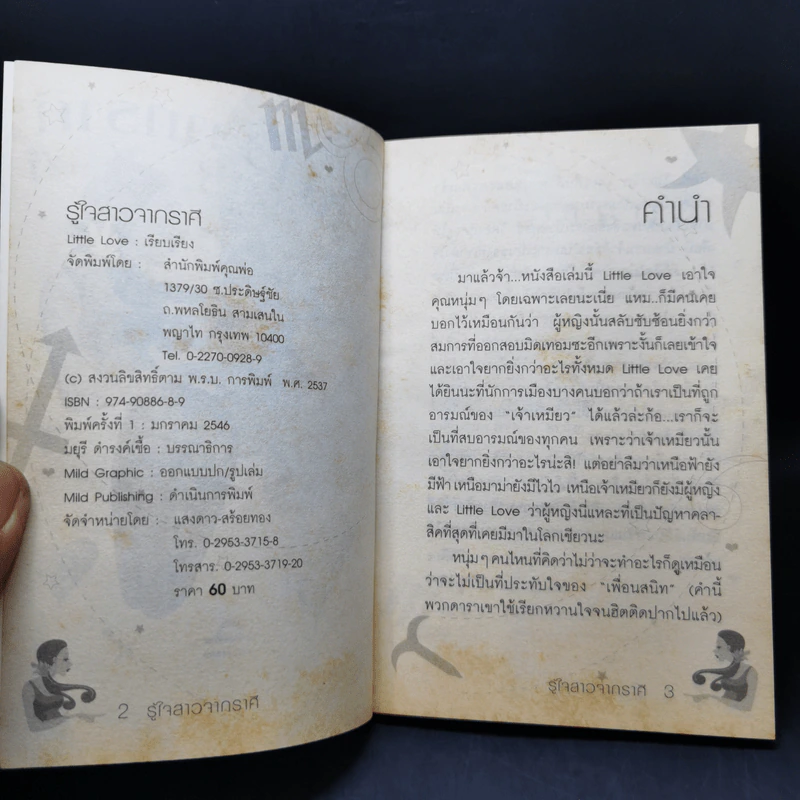 รู้ใจสาวจากราศี
Little Love : เรียบเรียง
จัดพิมพ์โดย : สำนักพิมพ์คุณพ่อ
1379/30 ซ.ประดิษฐ์ชัย
ถ.พหลโยธิน สามเสนใน
พญาไท กรุงเทพ 10400
Tel. 0-2270-0928-9
(c) สงวนลิขสิทธิ์ตาม พ.ร.บ. การพิมพ์ พ.ศ. 2537
ISBN : 974-90886-8-9
พิมพ์ครั้งที่ 1 : มกราคม 2546
มยุรี ดำรงค์เชื้อ : บรรณาธิการ
Mild Graphic : ออกแบบปก/รูปเล่ม
Mild Publishing : ดำเนินการพิมพ์
จัดจำหน่ายโดย : แสงดาว-สร้อยทอง
โทร. 0-2953-3715-8
โทรสาร. 0-2953-3719-20
ราคา 60 บาท
2 รู้ใจสาวจากราศี
คำนำ
มาแล้วจ้า...หนังสือเล่มนี้ Little Love เอาใจ
คุณหนุ่มๆ โดยเฉพาะเลยนะเนี่ย แหม..ก็มีคนเคย
บอกไว้เหมือนกันว่า ผู้หญิงนั้นสลับซับซ้อนยิ่งกว่า
สมการที่ออกสอบมิดเทอมซะอีกเพราะงั้นก็เลยเข้าใจ
และเอาใจยากยิ่งกว่าอะไรทั้งหมด Little Love เคย
ได้ยินนะที่นักการเมืองบางคนบอกว่าถ้าเราเป็นที่ถูก
อารมณ์ของ "เจ้าเหมียว" ได้แล้วล่ะก้อ...เราก็จะ
เป็นที่สบอารมณ์ของทุกคน เพราะว่าเจ้าเหมียวนั้น
เอาใจยากยิ่งกว่าอะไรน่ะสิ! แต่อย่าลืมว่าเหนือฟ้ายัง
มีฟ้า เหนือมาม่ายังมีไวไว เหนือเจ้าเหมียวก็ยังมีผู้หญิง
และ Little Love ว่าผู้หญิงนี่แหละที่เป็นปัญหาคลา-
สิคที่สุดที่เคยมีมาในโลกเชียวนะ
หนุ่มๆคนไหนที่คิดว่าไม่ว่าจะทำอะไรก็ดูเหมือน
ว่าจะไม่เป็นที่ประทับใจของ "เพื่อนสนิท" (คำนี้
พวกดาราเขาใช้เรียกหวานใจจนฮิตติดปากไปแล้ว)
รู้ใจสาวจากราศี 3